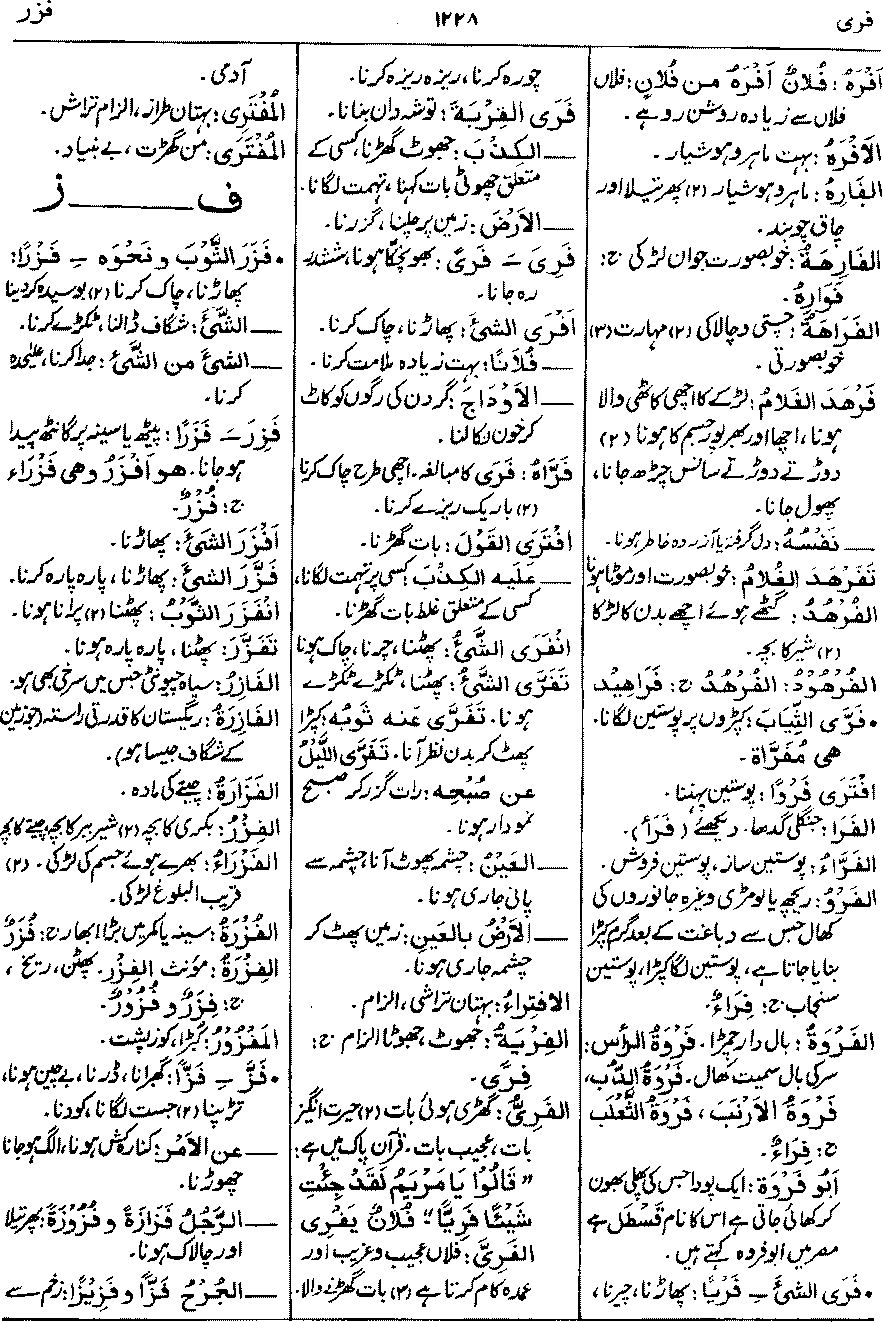 فری
۱۲۲۸
فزر
أَفْرَهُ: فُلَانٌ أَفْرَهُ مِن فُلَانٍ: فلاں
فلاں سے زیادہ روشن رو ہے۔
الأَفْرَهُ: بہت ماہر و ہوشیار۔
الفَارِهُ: ماہر و ہوشیار (۲) پھرتیلا اور
چاق چوبند۔
الفَارِهَةُ: خوبصورت جوان لڑکی ج:
فَوَارِهُ۔
الفَرَاهَةُ: چستی و چالاکی (۲) مہارت (۳)
خوبصورتی۔
فَرْهَدَ الغُلَامُ: لڑکے کا اچھی کاٹھی والا
ہونا، اچھا اور بھرپور جسم کا ہونا (۲)
دوڑتے دوڑتے سانس چڑھ جانا،
پھول جانا۔
ــــ نَفْسُهُ: دل گرفتہ یا آزردہ خاطر ہونا۔
تَفَرْهَدَ الغُلَامُ: خوبصورت اور موٹا ہونا
الفُرْهُدُ: گٹھے ہوئے اچھے بدن کا لڑکا
(۲) شیر کا بچہ۔
الفُرْهُودُ: الفُرْهُدُ ج: فَرَاهِيدُ
• فَرَّى الثِّيَابَ: کپڑوں پر پوستین لگانا۔
هی مُفَرَّاة۔
افْتَرَى فَرْوًا: پوستین پہننا۔
الفَرَا: جنگلی گدھا۔ دیکھئے (فَرَأ)۔
الفَرَّاءُ: پوستین ساز، پوستین فروش۔
الفَرْوُ: ریچھ یا لومڑی وغیرہ جانوروں کی
کھال جس سے دباغت کے بعد گرم کپڑا
بنایا جاتا ہے، پوستین لگا کپڑا، پوستین
سنجاب ج: فِرَاءٌ۔
الفَرْوَةُ: بال دار چمڑا۔ فَرْوَةُ الرَّأس:
سر کی بال سمیت کھال۔ فَرْوَةُ الدُّب،
فَرْوَةُ الأَرْنَب، فَرْوَةُ الثَّعْلَب
ج: فِرَاءٌ۔
أَبُو فَرْوَة: ایک پودا جس کی پھلی بھون
کر کھائی جاتی ہے اس کا نام قَسْطَل ہے
مصر میں ابو فروہ کہتے ہیں۔
• فَرَى الشئَ ــِ فَرْيًا: پھاڑنا، چیرنا،
چورہ کرنا، ریزہ ریزہ کرنا۔
فَرَى القِرْبَةَ: توشہ دان بنانا۔
ــــ الكَذِبَ: جھوٹ گھڑنا، کسی کے
متعلق جھوٹی بات کہنا، تہمت لگانا۔
ــــ الأَرْضَ: زمین پر چلنا، گزرنا۔
فَرِيَ ــَ فَرًى: بھونچکا ہونا، ششدر
رہ جانا۔
أَفْرَى الشئَ: پھاڑنا، چاک کرنا۔
ــــ فُلَانًا: بہت زیادہ ملامت کرنا۔
ــــ الأَوْدَاجَ: گردن کی رگوں کو کاٹ
کر خون نکالنا۔
فَرَّاهُ: فَرَى کا مبالغہ۔ اچھی طرح چاک کرنا
(۲) باریک ریزے کرنا۔
افْتَرَى القَوْلَ: بات گھڑنا۔
ــــ عَلَيه الكَذِبَ: کسی پر تہمت لگانا،
کسی کے متعلق غلط بات گھڑنا۔
انْفَرَى الشَّئُ: پھٹنا، چرنا، چاک ہونا
تَفَرَّى الشَّئُ: پھٹنا، ٹکڑے ٹکڑے
ہونا۔ تَفَرَّى عَنه ثَوبُه: کپڑا
پھٹ کر بدن نظر آنا۔ تَفَرَّى اللَّيلُ
عن صُبْحِه: رات گزر کر صبح
نمودار ہونا۔
ــــ العَيْنُ: چشمہ پھوٹ آنا، چشمہ سے
پانی جاری ہونا۔
ــــ الأَرْضُ بالعَينِ: زمین پھٹ کر
چشمہ جاری ہونا۔
الافتراءُ: بہتان تراشی، الزام۔
الفِرْيَةُ: جھوٹ، جھوٹا الزام ج:
فِرًى۔
الفَرِيُّ: گھڑی ہوئی بات (۲) حیرت انگیز
بات، عجیب بات۔ قرآن پاک میں ہے:
"قَالُوا يَا مَرْيَمُ لَقَدْ جِئْتِ
شَيْئًا فَرِيًّا" فُلَانٌ يَفْرِى
الفَرِىَّ: فلاں عجیب و غریب اور
عمدہ کام کرتا ہے (۳) بات گھڑنے والا۔
آدمی۔
المُفْتَرِي: بہتان طراز، الزام تراش۔
المُفْتَرَى: من گھڑت، بے بنیاد۔
ف ــــــــ ز
• فَزَرَ الثَّوْبَ و نَحْوَه ــِ فَزْرًا:
پھاڑنا، چاک کرنا (۲) بوسیدہ کر دینا
ــــ الشَّئَ: شگاف ڈالنا، ٹکڑے کرنا۔
ــــ الشئَ من الشَّئِ: جدا کرنا، علیٰحدہ
کرنا۔
فَزِرَ ــَ فَزَرًا: پیٹھ یا سینہ پر گانٹھ پیدا
ہو جانا۔ هو أفْزَرُ وهی فَزْرَاء
ج: فُزْرٌ۔
أَفْزَرَ الشئَ: پھاڑنا۔
فَزَّرَ الشئَ: پھاڑنا، پارہ پارہ کرنا۔
انْفَزَرَ الثَّوْبُ: پھٹنا (۲) پرانا ہونا۔
تَفَزَّرَ: پھٹنا، پارہ پارہ ہونا۔
الفَازِرُ: سیاہ چیونٹی جس میں سرخی بھی ہو۔
الفَازِرَةُ: ریگستان کا قدرتی راستہ (جو زمین
کے شگاف جیسا ہو)۔
الفَزَارَةُ: چیتے کی مادہ۔
الفِزْرُ: بکری کا بچہ (۲) شیر ببر کا بچہ، چیتے کا بچہ
الفَزْرَاءُ: بھرے ہوئے جسم کی لڑکی۔ (۲)
قریب البلوغ لڑکی۔
الفُزْرَةُ: سینہ یا کمر میں بڑا ابھار ج: فُزَرٌ
الفِزْرَةُ: مؤنث الفِزْر۔ پھٹن، ریخ،
ج: فِزَرٌ و فُزُورٌ۔
المَفْزُورُ: کبڑا، کوزہ پشت۔
• فَزَّ ــِ فَزًّا: گھبرانا، ڈرنا، بے چین ہونا،
تڑپنا (۲) جست لگانا، کودنا۔
ــــ عن الأَمْر: کنارہ کش ہونا، الگ ہو جانا
چھوڑنا۔
ــــ الرَّجُلُ فَزَازَةً و فُزُوزَةً: پھرتیلا
اور چالاک ہونا۔
ــــ الجُرْحُ فَزًّا و فَزِيزًا: زخم سے